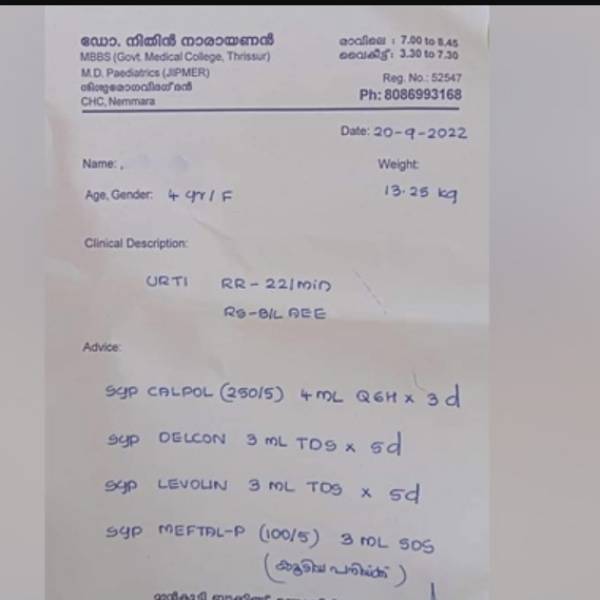 ഡോ. നിതിൻ നാരായണൻ
MBBS (Govt. Medical College, Thrissur)
M.D. Paediatrics (JIPMER)
ശിശുരോഗവിദഗ്ദൻ
CHC, Nemmara
രാവിലെ : 7.00 to 8.45
വൈകീട്ട്: 3.30 to 7.30
Reg. No.: 52547
Ph: 8086993168
Date: 20-9-2022
Name:
Weight:
Age, Gender: 4 yr / F
13.25 kg
Clinical Description:
URTI RR - 22/min
RS-B/L AEE
Advice:
syp CALPOL (250/5) 4 mL Q6H x 3d
syp DELCON 3 mL TDS x 5d
syp LEVOLIN 3 mL TDS x 5d
syp MEFTAL-P (100/5) 3 mL SOS
(കൂടിയ പനിയ്ക്ക്)